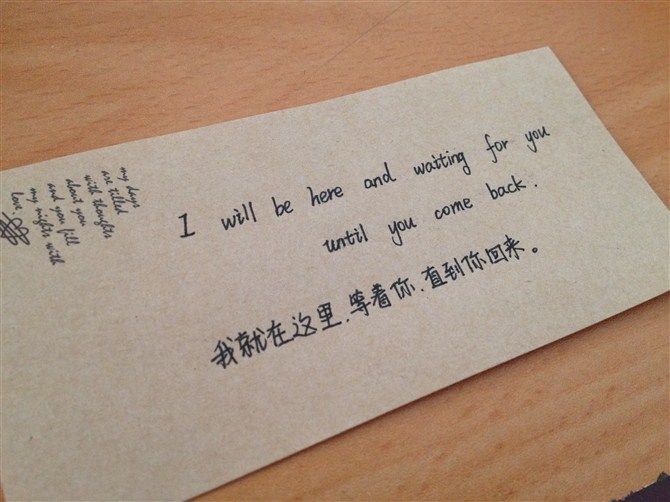 my days
are filled
with thoughts
about you
and you fill
my nights with
love
I will be here and waiting for you
until you come back.
我就在这里.等着你.直到你回来。